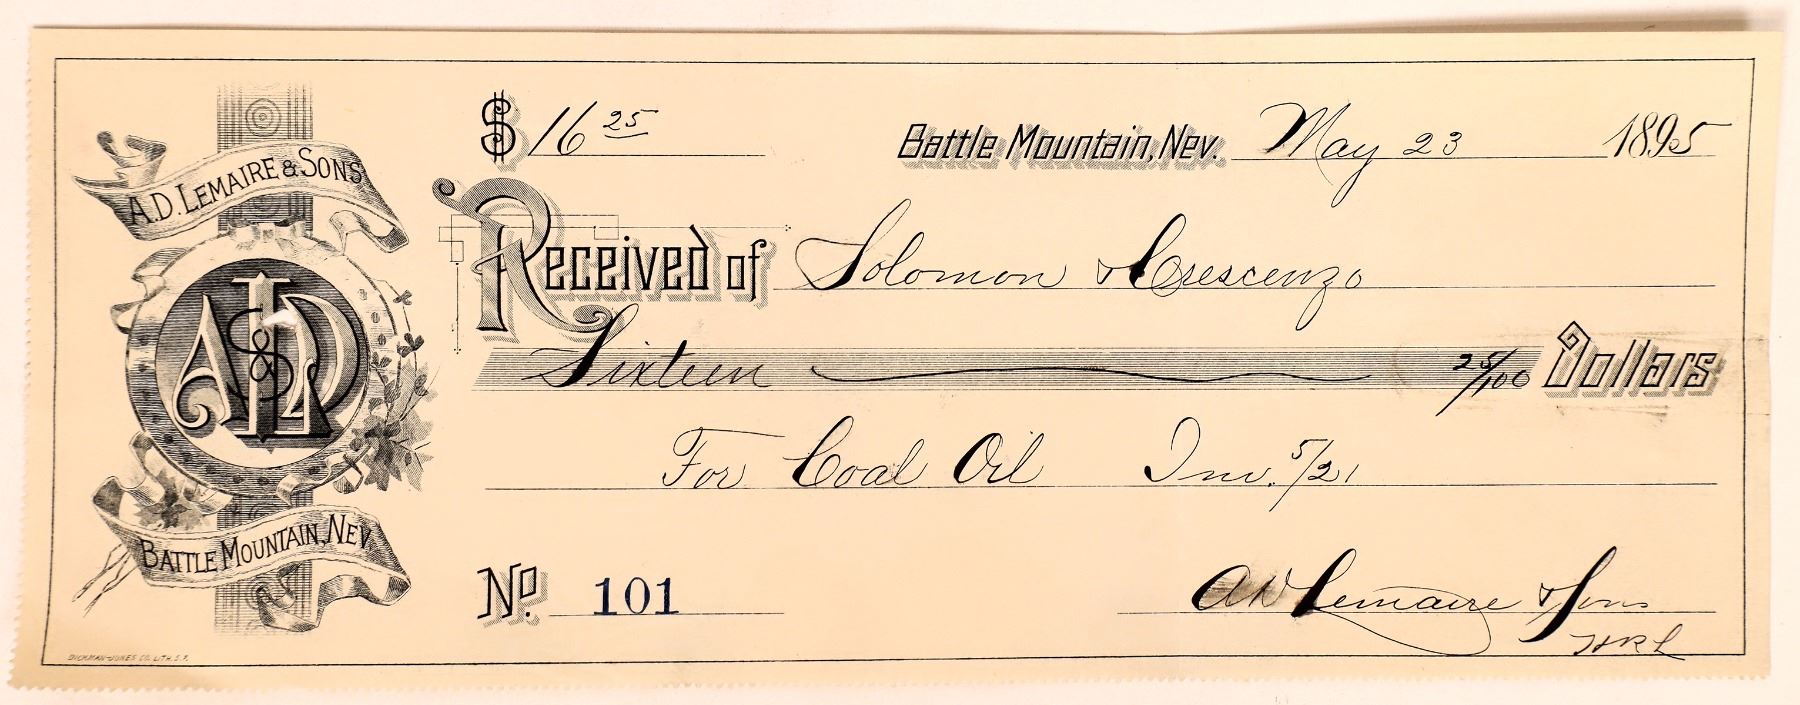 A.D. LEMAIRE & SONS
AL&SD
BATTLE MOUNTAIN, NEV.
$ 16 25
Battle Mountain, Nev. May 23 1895
Received of Solomon & Crescenzo
Sixteen 25/100 Dollars
For Coal Oil Inv. 5/21
No. 101
AD Lemaire & Sons
HRL
DICKMAN-JONES CO. LITH. S.F.